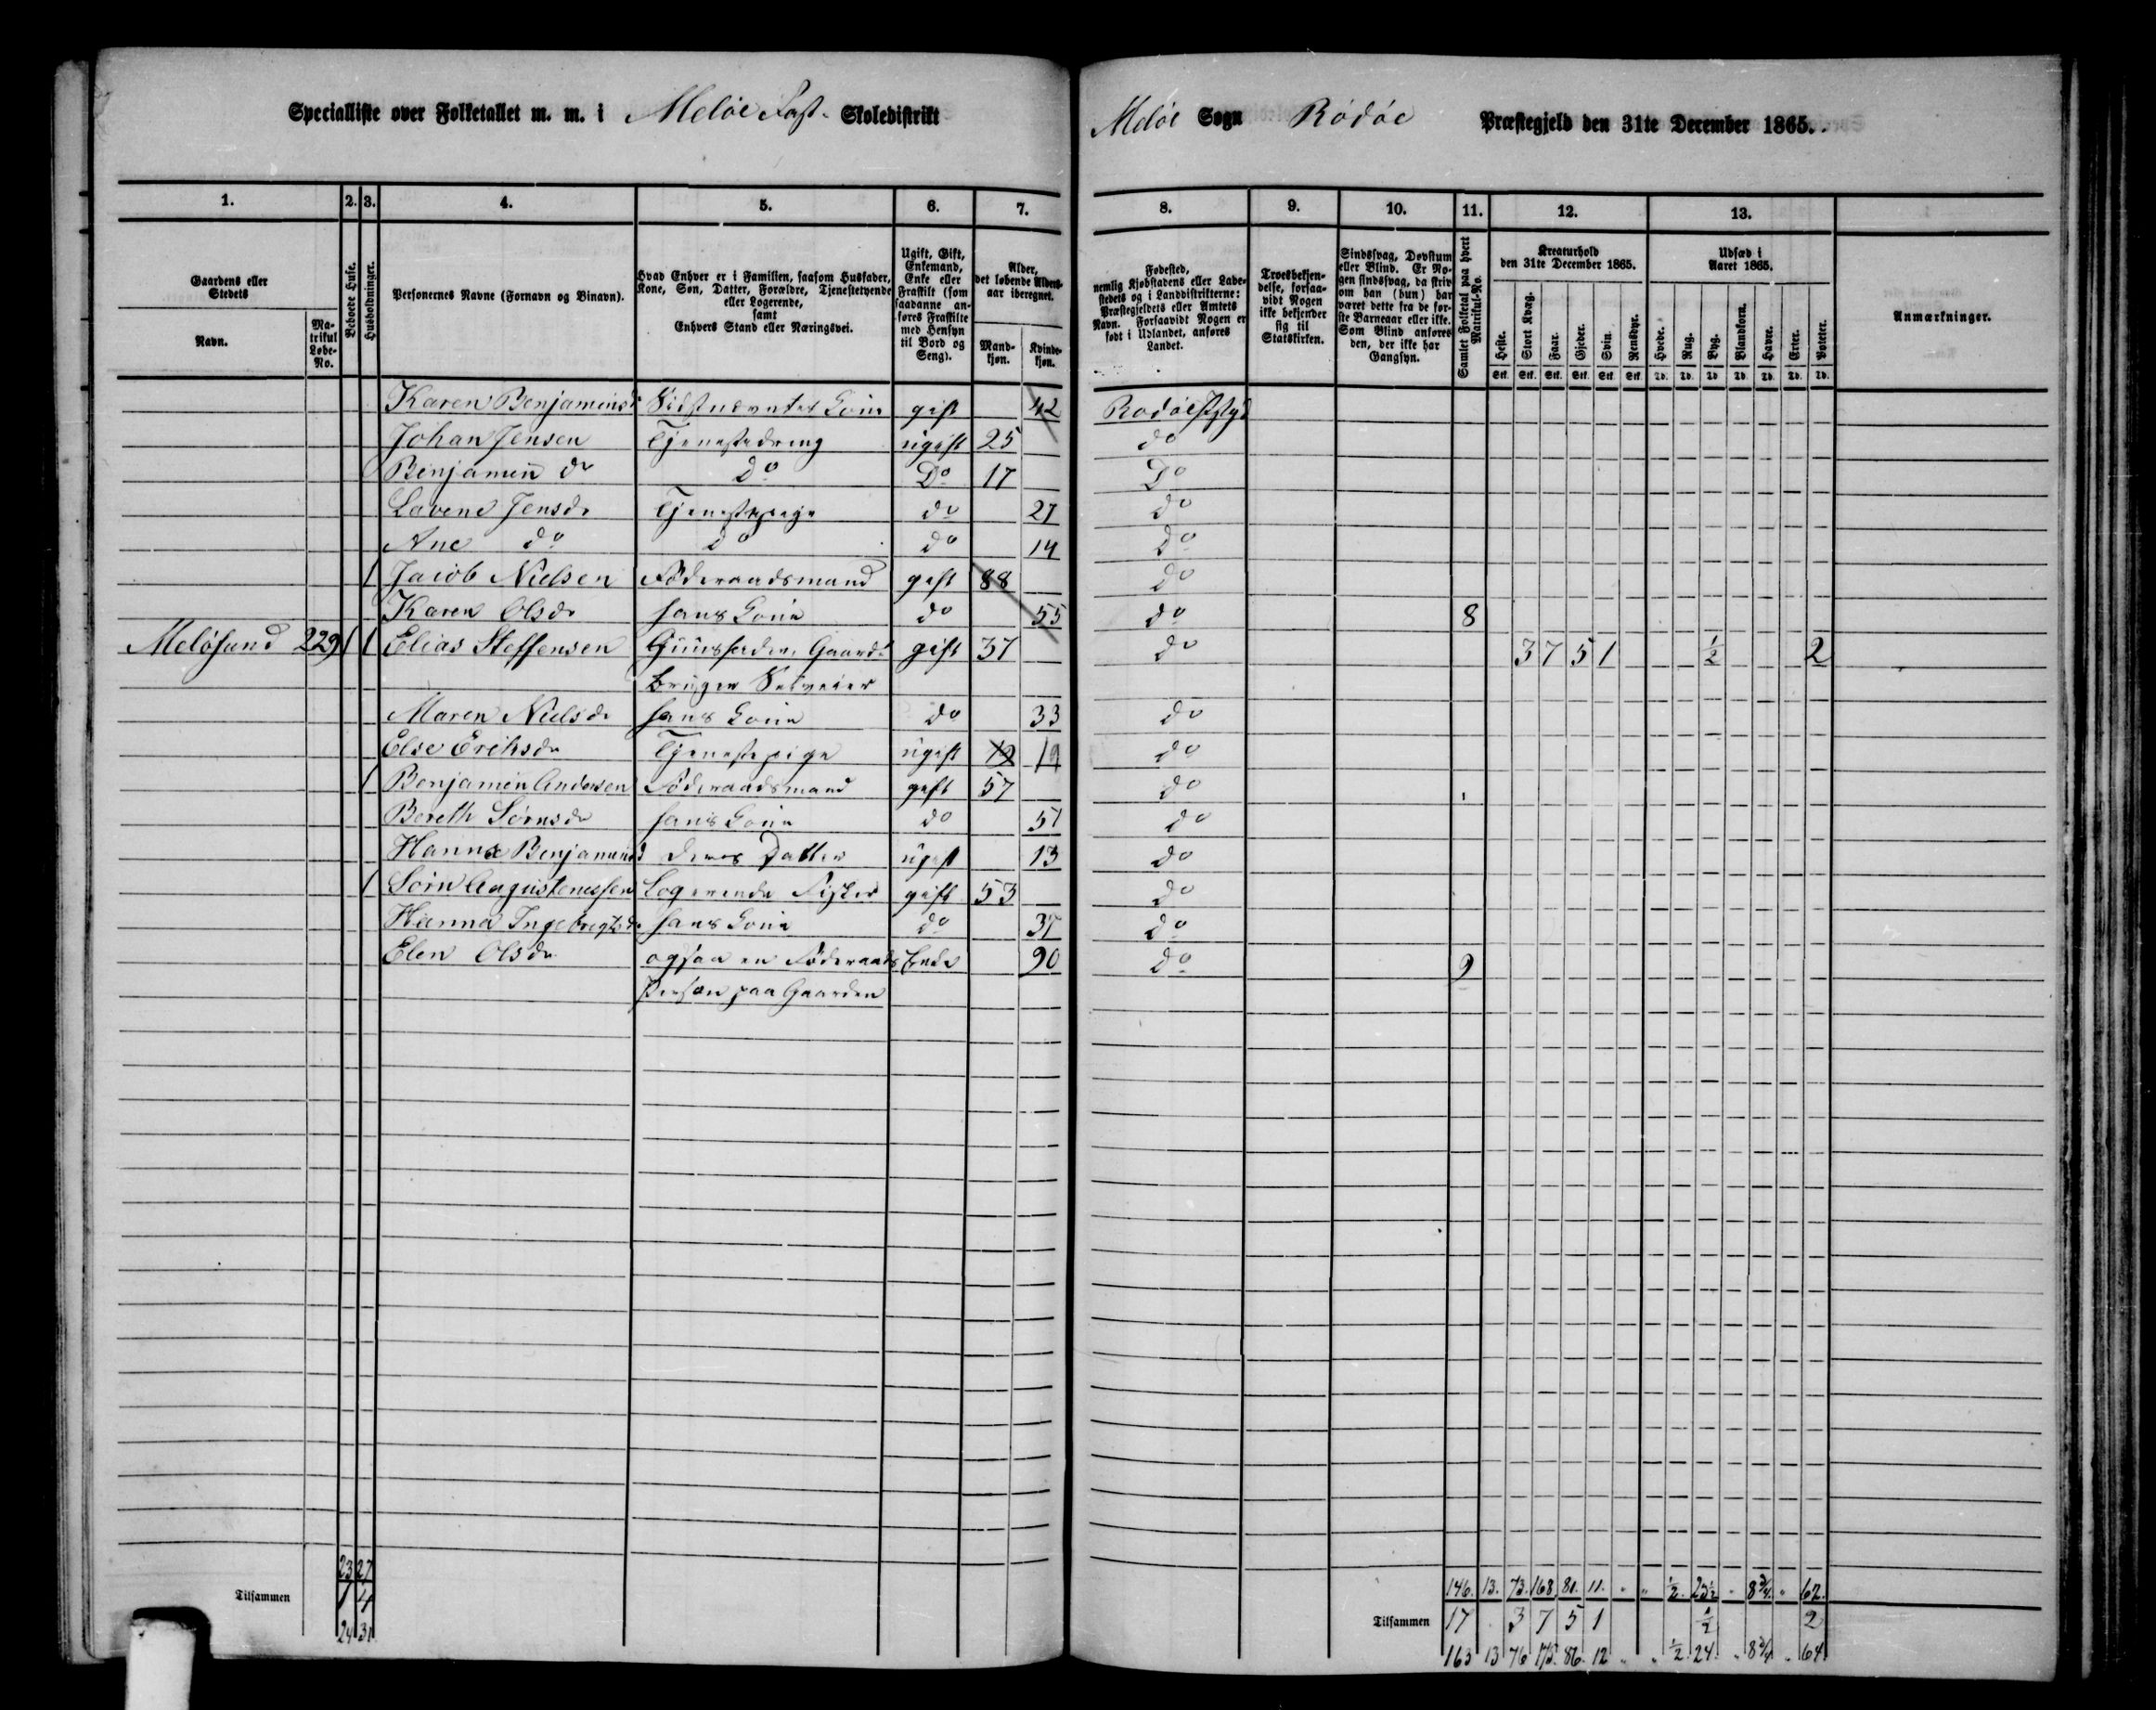 Specialliste over Folketallet m. m. i Meløe Fast- Skoledistrikt Meløe Sogn Rödöe Præstegjeld den 31te December 1865.
1. 2. 3. 4. 5. 6. 7. 8. 9. 10. 11. 12. 13.
Gaardens eller Stedets
Navn.
Matrikul Løbe-No.
Beboede Huse.
Husholdninger.
Personernes Navne (Fornavn og Binavn).
Hvad Enhver er i Familien, saasom Husfader, Kone, Søn, Datter, Forældre, Tjenestetyende eller Logerende, samt Enhvers Stand eller Næringsvei.
Ugift, Gift, Enkemand, Enke eller Fraskilt (som saadanne anføres Fraskilte med Hensyn til Bord og Seng).
Alder, det løbende Alders-aar iberegnet.
Mandkjøn.
Kvindekjøn.
Fødested, nemlig Kjøbstadens eller Ladestedets og i Landdistrikterne: Præstegjeldets eller Amtets Navn. Forsaavidt Nogen er født i Udlandet, anføres Landet.
Troesbekjendelse, forsaavidt Nogen ikke bekjender sig til Statskirken.
Sindssvag, Døvstum eller Blind. Er Nogen sindssvag, da skriv om han (hun) har været dette fra de første Barneaar eller ikke. Som Blind anføres den, der ikke har Gangsyn.
Samlet Folketal paa hvert Matrikul-No.
Kreaturhold den 31te December 1865.
Heste. Stort Kvæg. Faar. Gjeder. Svin. Rensdyr.
Stk. Stk. Stk. Stk. Stk. Stk.
Udsæd i Aaret 1865.
Hvede. Rug. Byg. Blandkorn. Havre. Erter. Poteter.
Td. Td. Td. Td. Td. Td. Td.
Anmærkninger.
Karen Benjaminsd Sidstnævntes Kone gift 42 Rodöe
Johan Jensen Tjenestedreng ugift 25 do
Benjamin do do Do 17 Do
Lovene Jensdr Tjenestepige do 27 do
Ane do do do 14 do
1 Jacob Nielsen Föderaadsmand gift 88 do
Karen Olsdr hans Kone do 55 do 8
Melösund 229 1 1 Elias Steffensen Huusfader, Gaard- gift 37 do 3 7 5 1 ½ 2
bruger Selveier
Maren Nielsdr hans Kone do 33 do
Else Eriksdr Tjenestepige ugift 19 19 do
1 Benjamin Andersen Föderaadsmand gift 57 do
Bereth Sörnsdr hans Kone do 57 do
Hanna Benjaminsd deres Datter ugift 13 do
1 Sörn Augustenussen Logerende Fisker gift 53 do
Hanna Ingebregtsdr hans Kone do 37 do
Elen Olsdr ogsaa en Föderaads Enke 90 do 9
Person paa Gaarden
23 27 146. 13. 73. 168 81. 11. " " ½. 23½ " 8¾. " 62.
Tilsammen 1 4 Tilsammen 17 3 7 5 1 ½ 2
24 31 163 13 76 175. 86. 12 " " ½ 24. " 8¾ " 64.